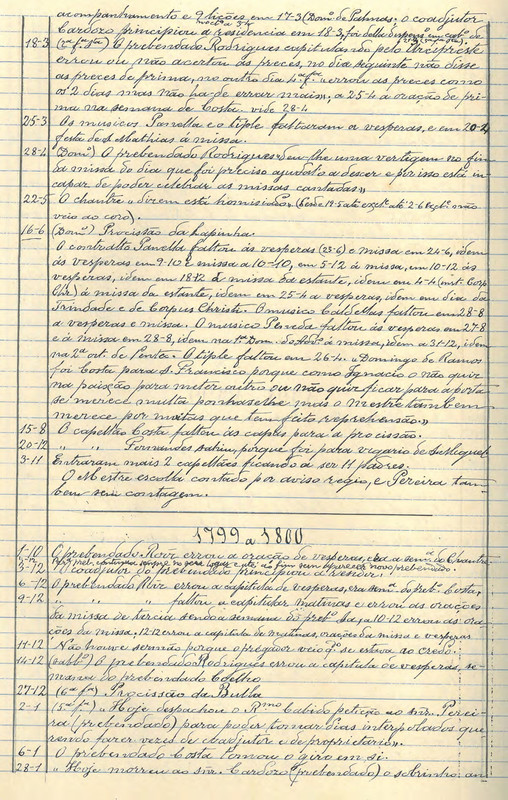 acompanhamento e 9 lições em 17-3 (Domº de Palmas), o coadjutor
Cardozo principiou a residencia em 18-3, foi delle dispens. em cabº de
18-3 (2ª fª Stª) O prebendado Rodrigues capitulando pelo Arcipreste
errou ou não acertou as preces, no dia seguinte não disse
as preces de prima, no outro dia 4ª fª "errou as preces como
os 2 dias mas não ha-de errar mais", a 25-4 a oração de pri-
ma na semana de Costa. vide 28-4
25-3 Os musicos Panella e o tiple faltaram a vesperas, e em 20-2
festa de S. Mathias á missa.
28-4 (Domº) O prebendado Rodrigues "deu-lhe uma vertigem no fim
da missa do dia que foi preciso ajudal-o a descer e por isso está in-
capaz de poder celebrar as missas cantadas"
22-5 O chantre "dizem está homisiado" (desde 19-5 até 2-6 não
veio ao coro).
16-6 (Domº) Procissão da Lapinha.
O contralto Panella faltou ás vesperas (23-6) e missa em 24-6, idem
ás vesperas em 9-10 e missa a 10-10, em 5-12 á missa, em 10-12 ás
vesperas, idem em 18-12 á missa da estante, idem em 4-4 (inst. Corp.
Chr.) á missa da estante, idem em 25-4 a vesperas, idem em dia da
Trindade e de Corpus Christi. O musico Caldellas faltou em 28-8
a vesperas e missa. O musico Peneda faltou ás vesperas em 27-8
e á missa em 28-8, idem na 1ª Dom. do Advº á missa, idem a 31-12, idem
na 2ª oit. de Pente. O tiple faltou em 26-4. "Domingo de Ramos
foi Costa para S. Francisco porque como Ignacio o não quiz
na paixão para meter outro ou não quiz ficar para a porta
se merece multa ponha-se-lhe mas o mestre tambem
merece por muitas que tem feito, reprehensão."
15-8 O capellão Costa faltou ás capas para a procissão.
20-12 " " Fernandes sahiu, porque foi para vigario de S. Miguel
3-11 Entraram mais 2 capellães ficando a ser 11 padres.
O Mestre escolla contado por aviso regio, e Pereira tam-
bem sem contagem.
1799 a 1800
1-10 O prebendado Rodr errou a oração de vesperas, era a semª do Chantre
3-12 O coadjutor do prebendado principiou a residir.
6-12 O prebendado Roiz errou a capitula de vesperas, era semª do prebº Costa,
9-12 " " faltou a capitular matinas e errou as orações
da missa de tercia sendo a semana do prebº Sá, a 10-12 errou as ora-
ções da missa, 12-12 errou a capitula de matinas, orações da missa e vesperas
11-12 Não houve sermão porque o prégador veio qdº se estava no Credo.
14-12 (sabbº) O prebendado Rodrigues errou a capitula de vesperas, se-
mana do prebendado Coelho
27-12 (6ª fª) Procissão da Bulla
2-1 (5ª fª) "Hoje despachou o Rmo Cabido petição ao snr. Perei-
ra (prebendado) para poder tomar dias interpolados que-
rendo fazer vezes de coadjutor e de proprietario".
6-1 O prebendado Costa tomou o giro em si.
28-1 "Hoje morreu ao snr. Cardozo (prebendado) o sobrinho, an-